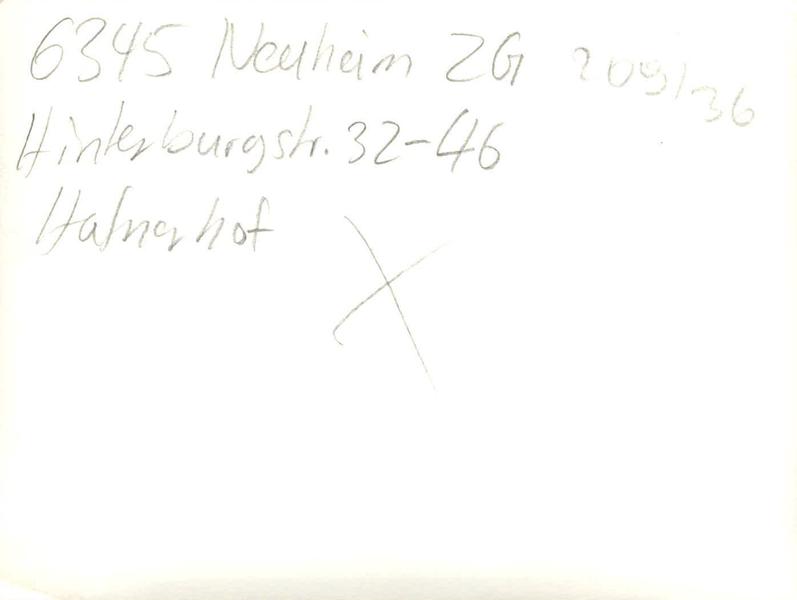 6345 Neuheim ZG 209/36
Hinterburgstr. 32-46
Hafnerhof